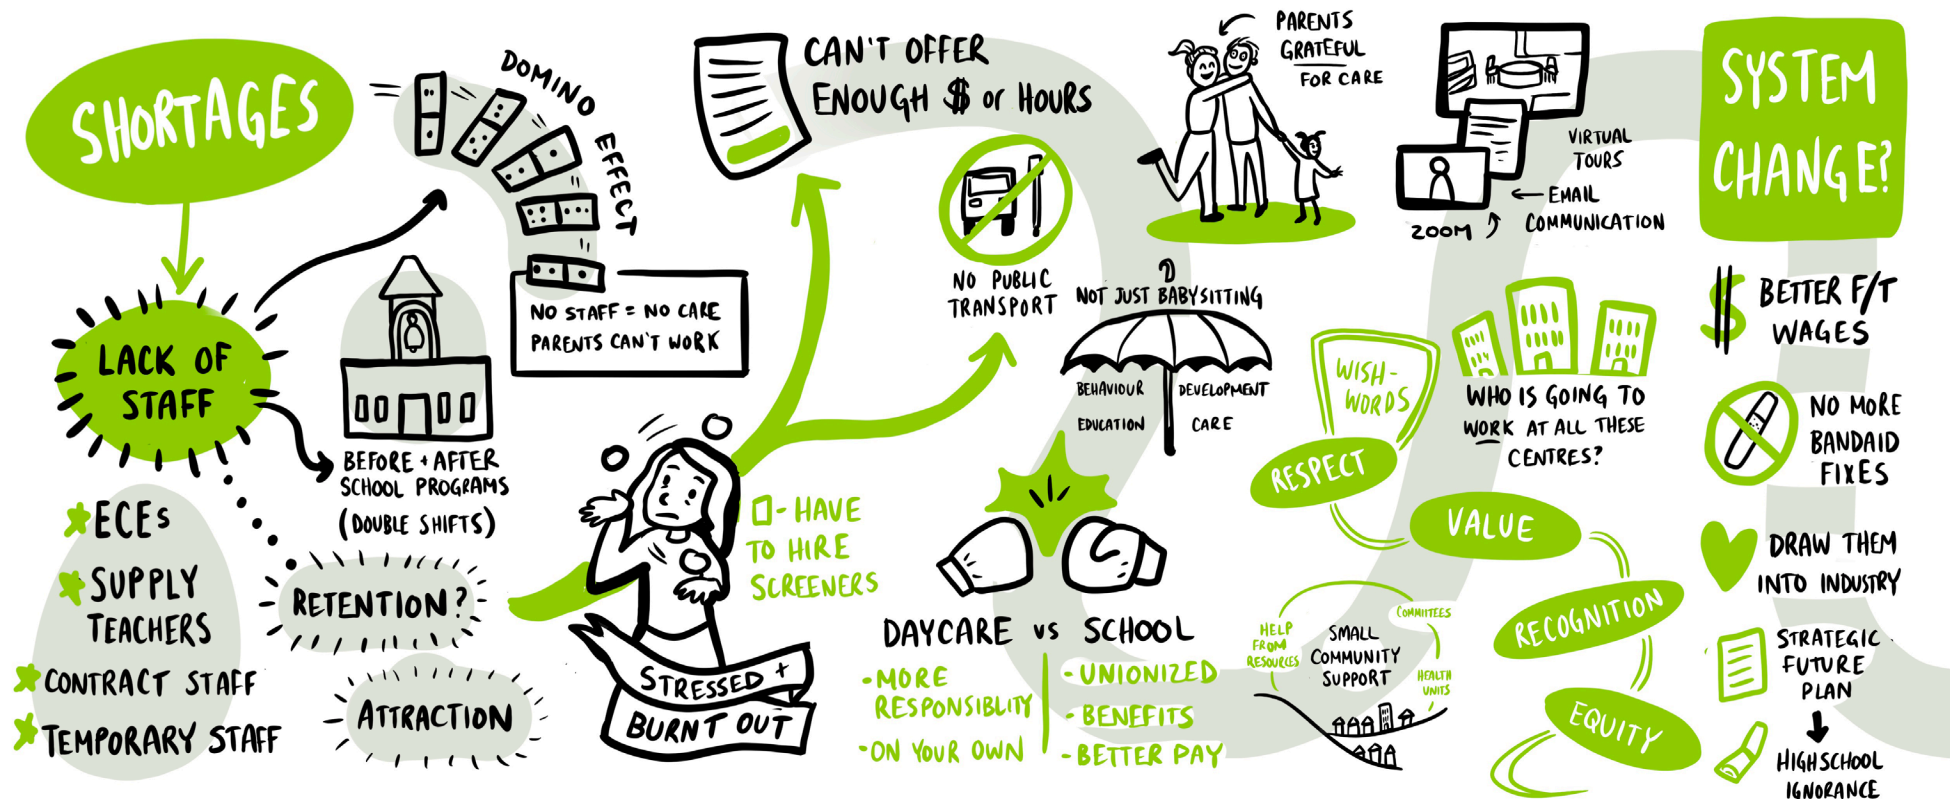 SHORTAGES
LACK OF
STAFF
ECEs
SUPPLY
TEACHERS
CONTRACT STAFF
TEMPORARY STAFF
DOMINO EFFECT
NO STAFF = NO CARE
PARENTS CAN'T WORK
BEFORE + AFTER
SCHOOL PROGRAMS
(DOUBLE SHIFTS)
RETENTION?
ATTRACTION
STRESSED +
BURNT OUT
- HAVE
TO HIRE
SCREENERS
CAN'T OFFER
ENOUGH $ or HOURS
NO PUBLIC
TRANSPORT
PARENTS
GRATEFUL
FOR CARE
NOT JUST BABYSITTING
BEHAVIOUR
DEVELOPMENT
EDUCATION
CARE
DAYCARE vs SCHOOL
- MORE
RESPONSIBLITY
- ON YOUR OWN
- UNIONIZED
- BENEFITS
- BETTER PAY
VIRTUAL
TOURS
EMAIL
COMMUNICATION
ZOOM
WISH-
WORDS
RESPECT
VALUE
RECOGNITION
EQUITY
WHO IS GOING TO
WORK AT ALL THESE
CENTRES?
HELP
FROM
RESOURCES
SMALL
COMMUNITY
SUPPORT
COMMITTEES
HEALTH
UNITS
SYSTEM
CHANGE?
$ BETTER F/T
WAGES
NO MORE
BANDAID
FIXES
DRAW THEM
INTO INDUSTRY
STRATEGIC
FUTURE
PLAN
HIGHSCHOOL
IGNORANCE